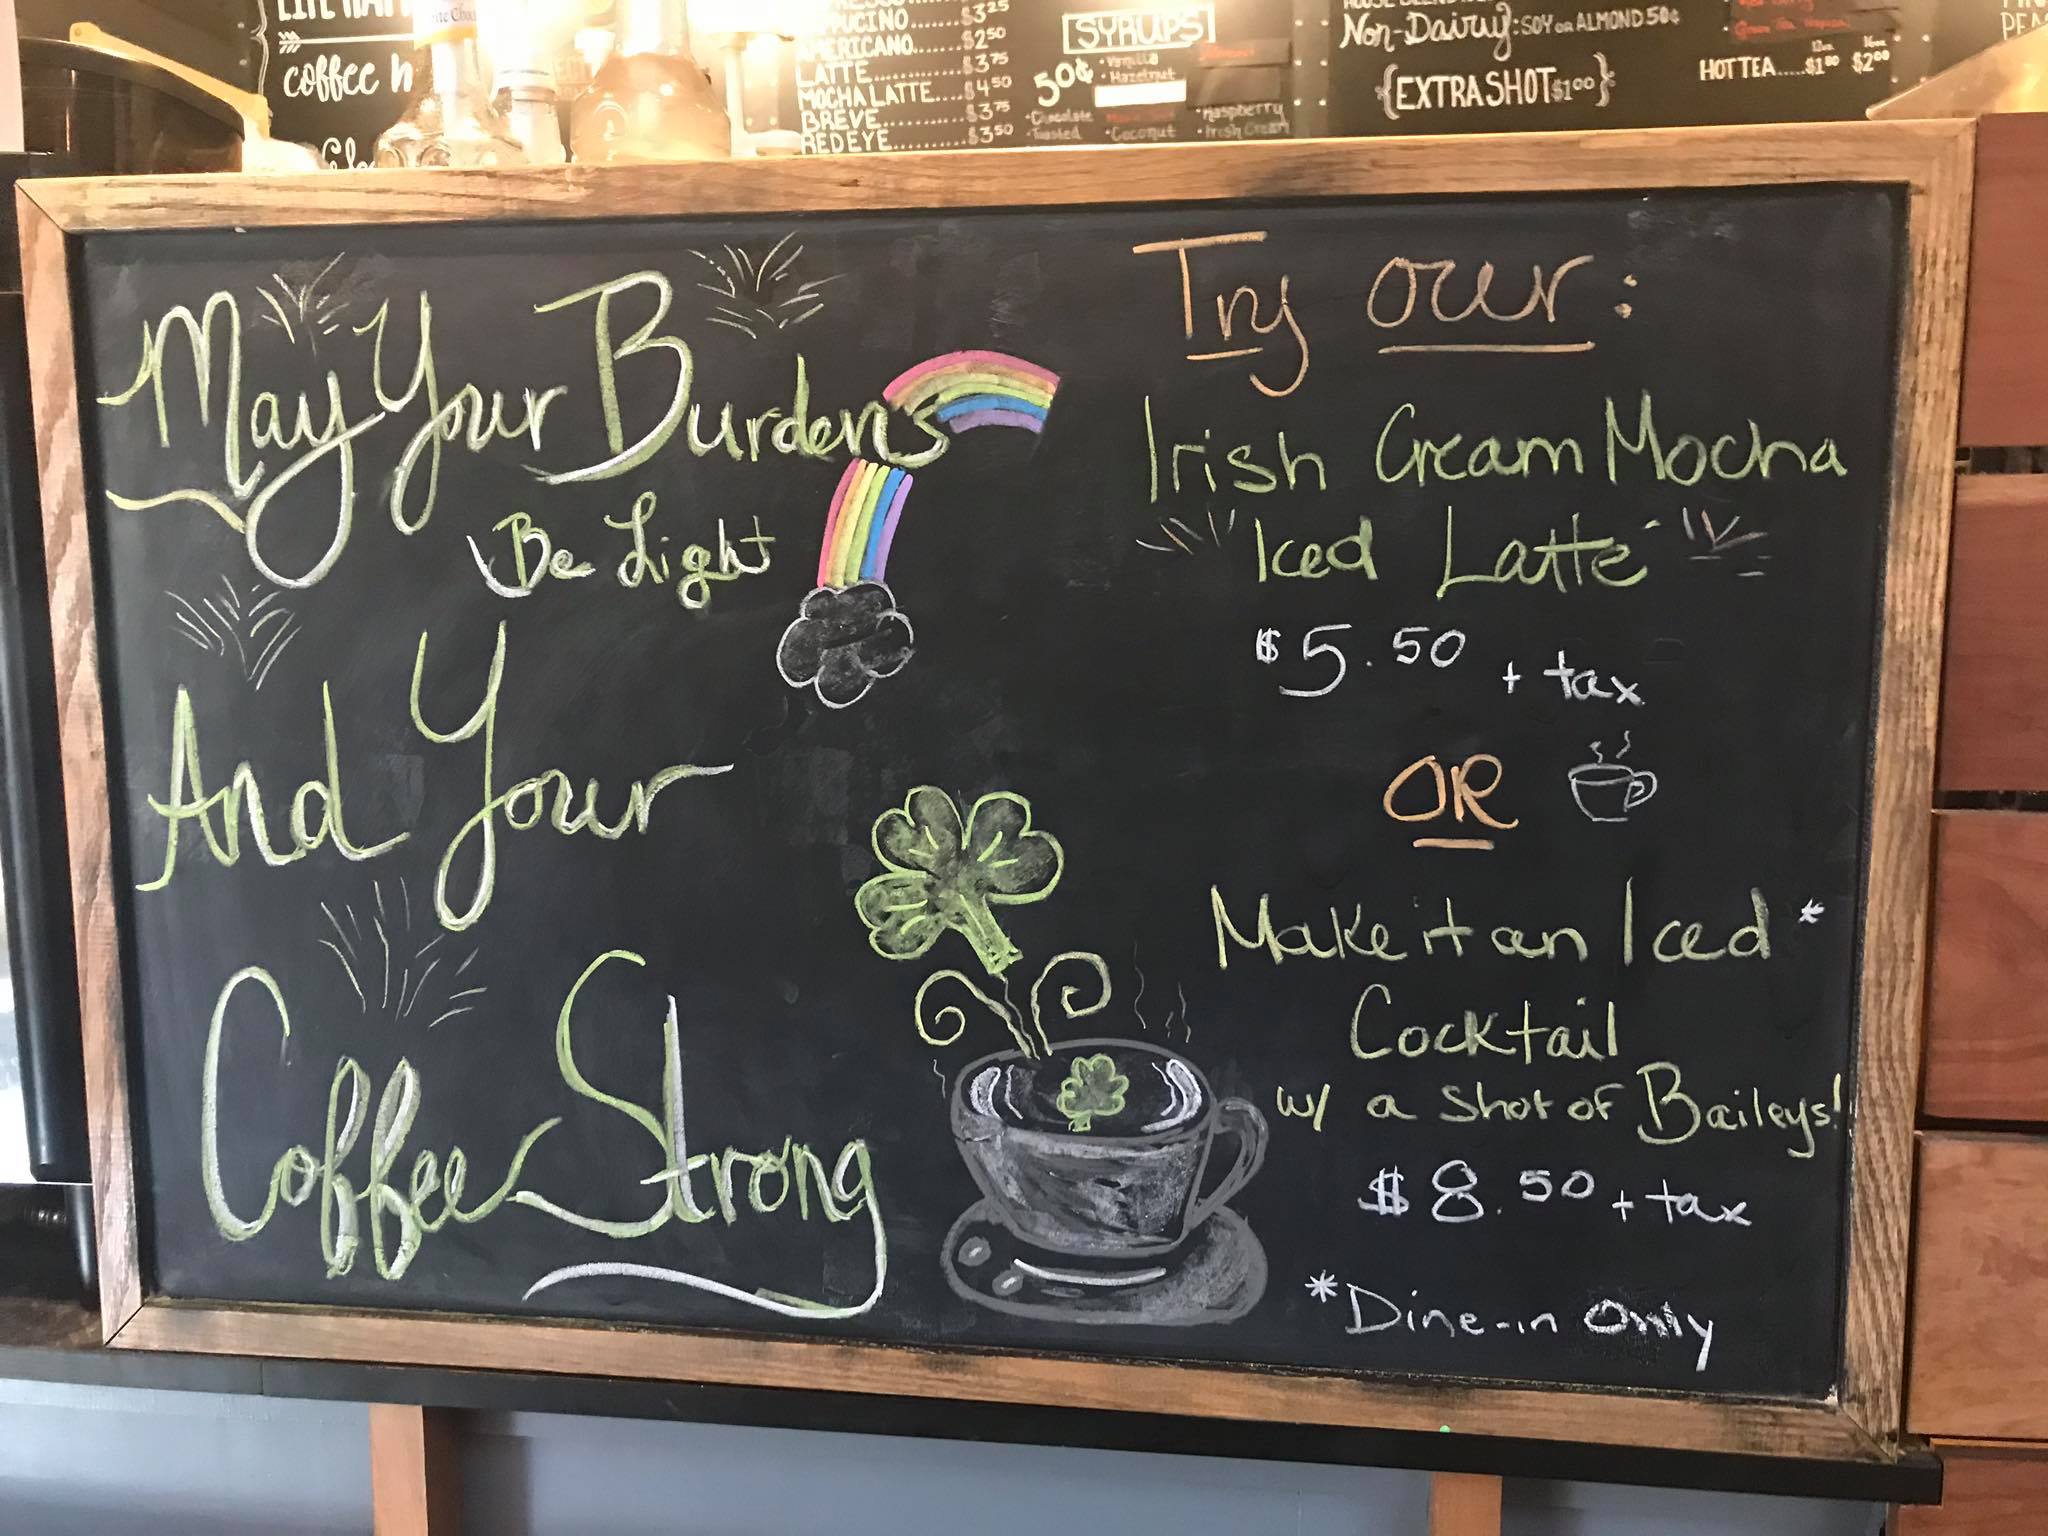 coffee
$3.25
AMERICANO.......$2.50
LATTE............$3.75
MOCHA LATTE....$4.50
BREVE...........$3.75
REDEYE.........$3.50
SYRUPS
50¢
• Vanilla
• Hazelnut
• Chocolate
• Toasted
• Coconut
• Raspberry
• Irish Cream
Non-Dairy: SOY OR ALMOND 50¢
{EXTRA SHOT $1.00}
12oz 16oz
HOT TEA.....$1.80 $2.00
May Your Burdens
Be Light
And Your
Coffee Strong
Try our:
Irish Cream Mocha
Iced Latte
$5.50 + tax
OR
Make it an Iced *
Cocktail
w/ a shot of Baileys!
$8.50 + tax
*Dine-in Only